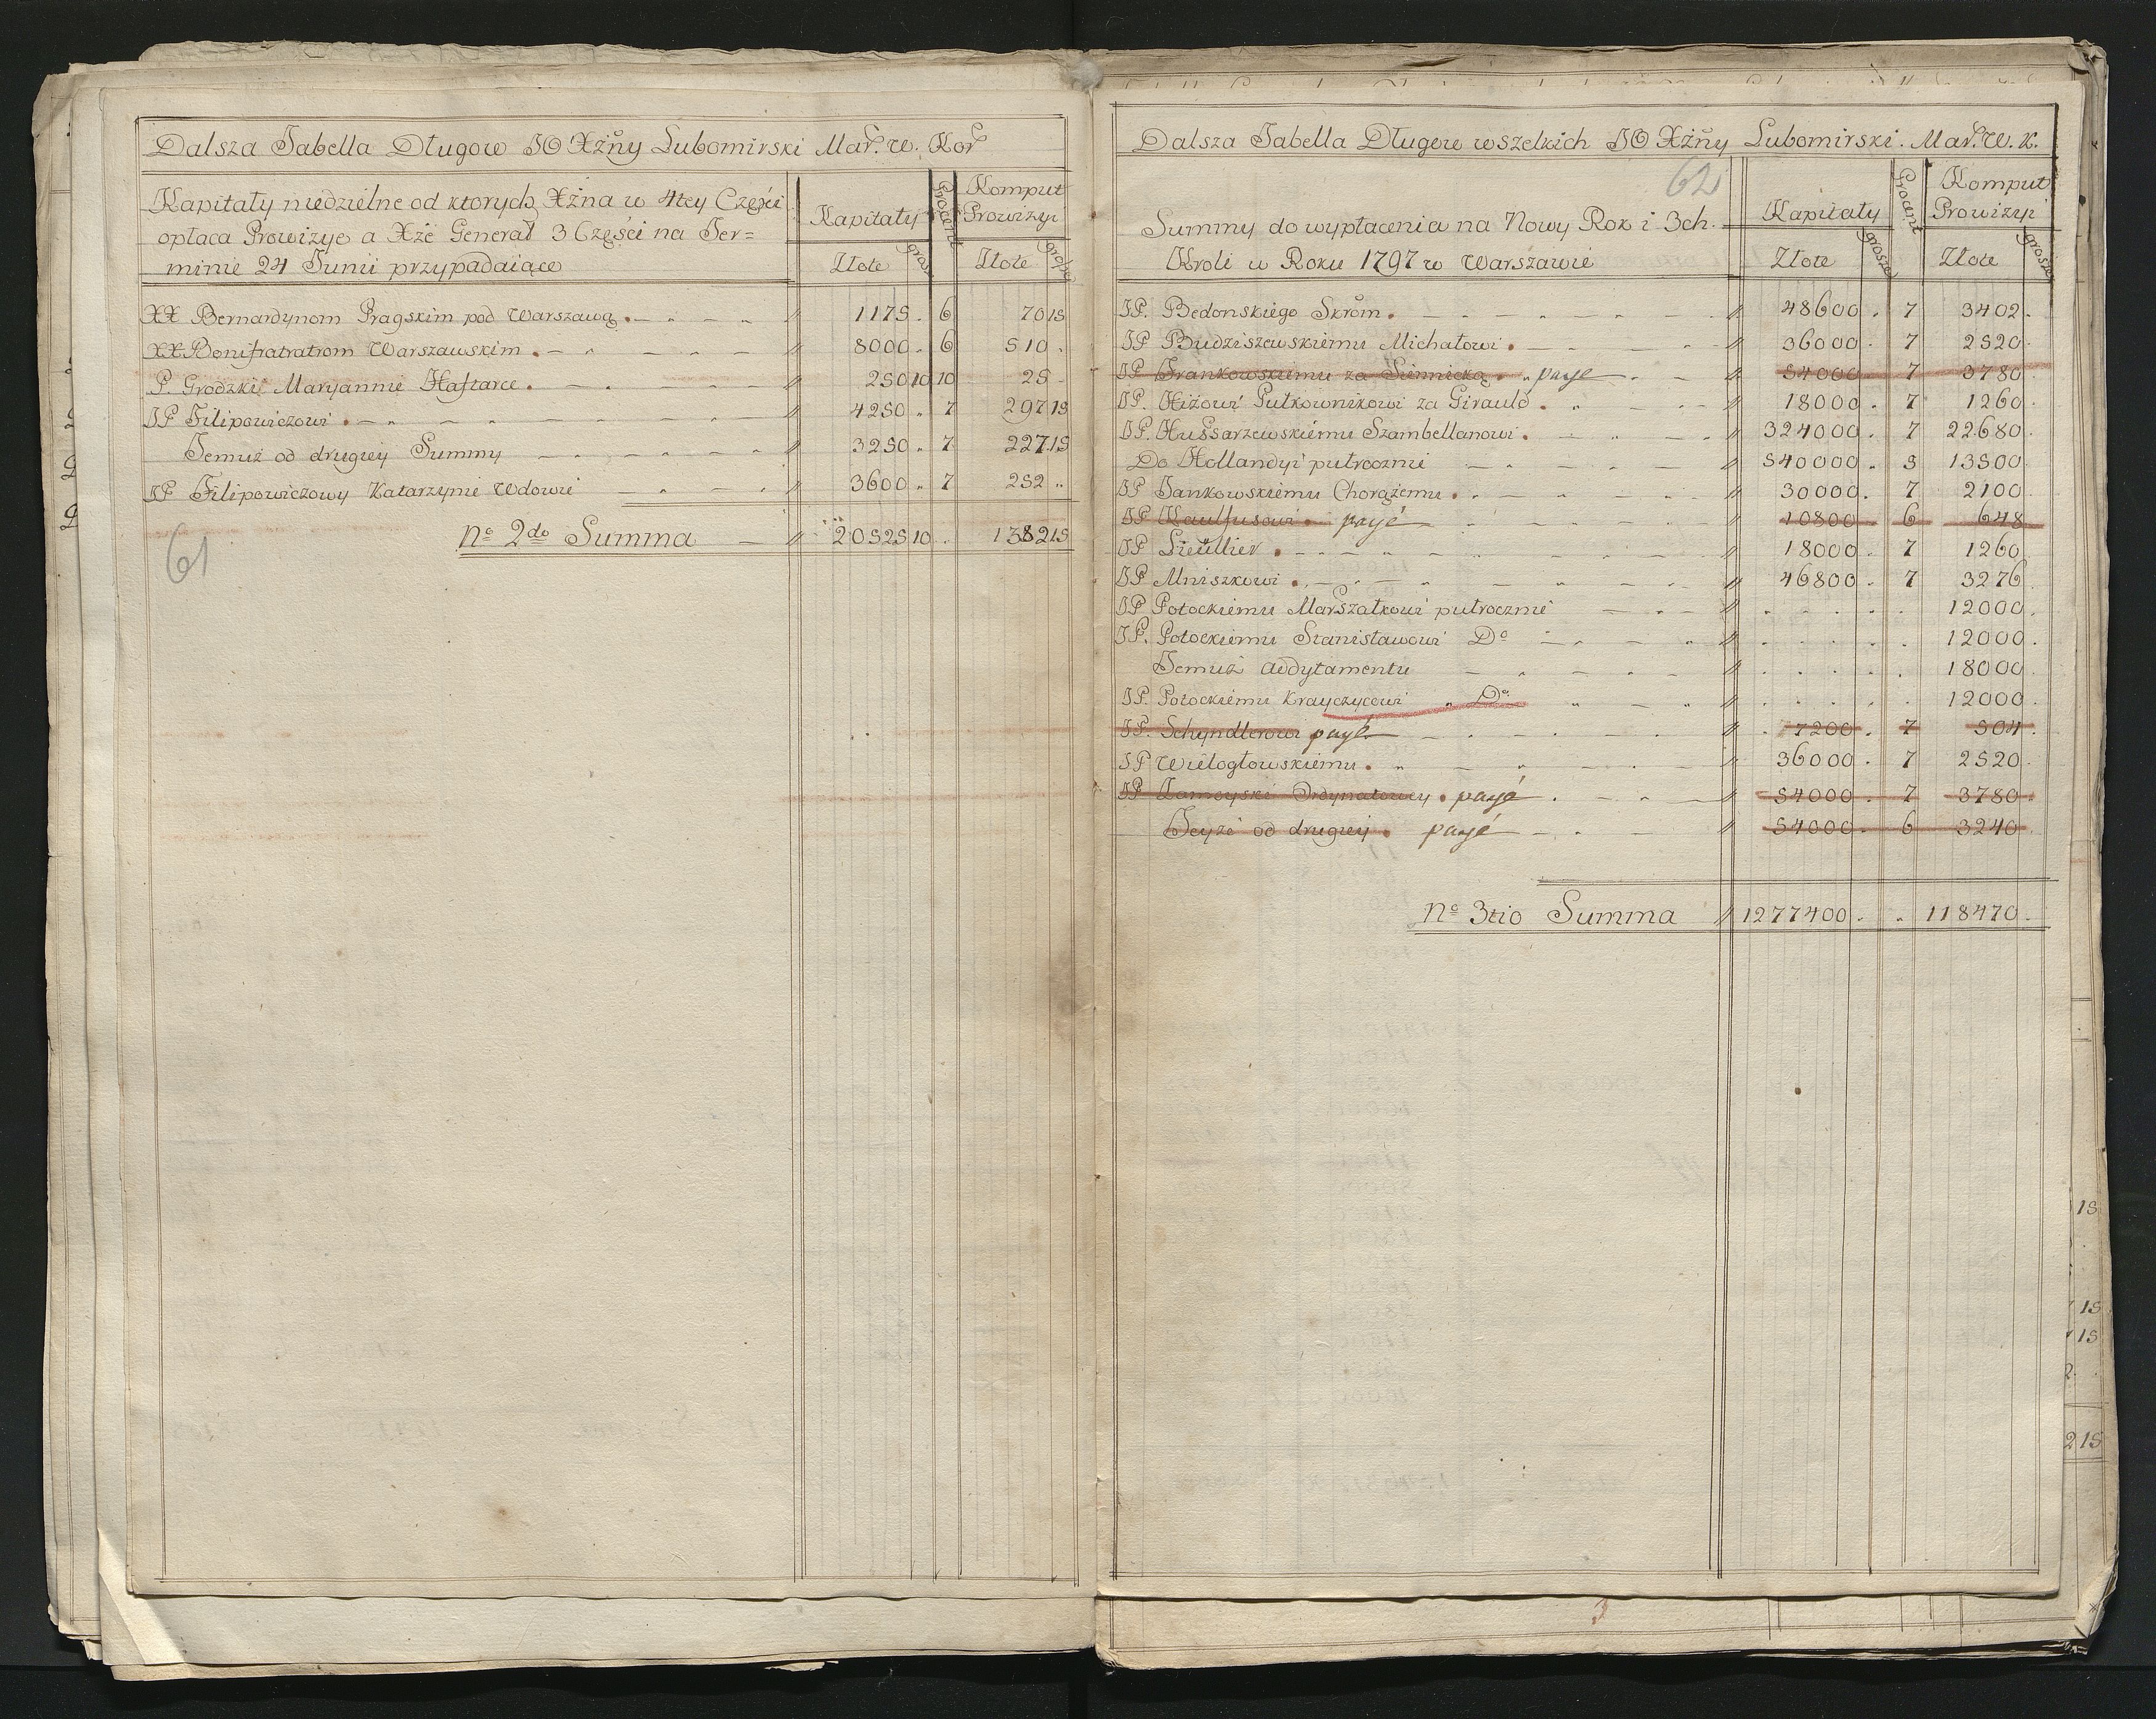 Dalsza Tabella Długow JO Xżny Lubomirski Mar. w. Kor
Kapitały niedzielne od ktorych Xżna w 4tey Częsci
opłaca Prowizye a Xże Generał 3 Części na Ter=
minie 24 Junii przypadaiące
Kapitały
Procent
Komput
Prowizyi
Złote
grosz
Złote
grosze
XX Bernardynom Pragskim pod Warszawą 1175 . 6 70 15
XX Bonifratratrom Warszawskim 8000 . 6 510 .
P. Grodzki Maryannie Haftarce 250 10 10 25 .
JP Filipowiczowi 4250 . 7 297 15
Temuż od drugiey Summy 3250 . 7 227 15
JP Filipowiczowy Katarzynie Wdowie 3600 . 7 252 .
No 2do Summa 20525 10 . 1382 15
61
Dalsza Tabella Długow wszelkich JO Xżny Lubomirski. Mar. W. K.
62
Summy do wypłacenia na Nowy Rok i 3ch.
Kroli w Roku 1797 w Warszawie
Kapitały
Procent
Komput
Prowizyi
Złote
grosze
Złote
grosze
JP. Bedonskiego Skrom. 48600 . 7 3402 .
JP Budziszewskiemu Michałowi 36000 . 7 2520 .
JP Frankowskiemu za Siennicką payé 54000 7 3780
JP. Hiżowi Pułkownikowi za Girauld 18000 . 7 1260 .
JP. Hussarzewskiemu Szambellanowi 324000 . 7 22680 .
Do Hollandyi pułrocznie 540000 . 5 13500 .
JP Jankowskiemu Chorążemu 30000 . 7 2100 .
JP Kaulfusowi payé 10800 6 648
JP Lieullier 18000 . 7 1260 .
JP Mniszkowi 46800 . 7 3276 .
JP Potockiemu Marszałkowi pułrocznie 12000 .
JP. Potockiemu Stanisławowi Do 12000 .
Temuż Addytamentu 18000 .
JP. Potockiemu Krayczycowi Do 12000 .
JP. Schyndlerowi payé 7200 . 7 504 .
JP Wielogłowskiemu 36000 . 7 2520 .
JP Zamoyski Ordynatowey payé 54000 . 7 3780 .
Teyże od drugiey payé 54000 . 6 3240 .
No 3tio Summa 1277400 . 118470 .
15
15
15
2
2 15
3